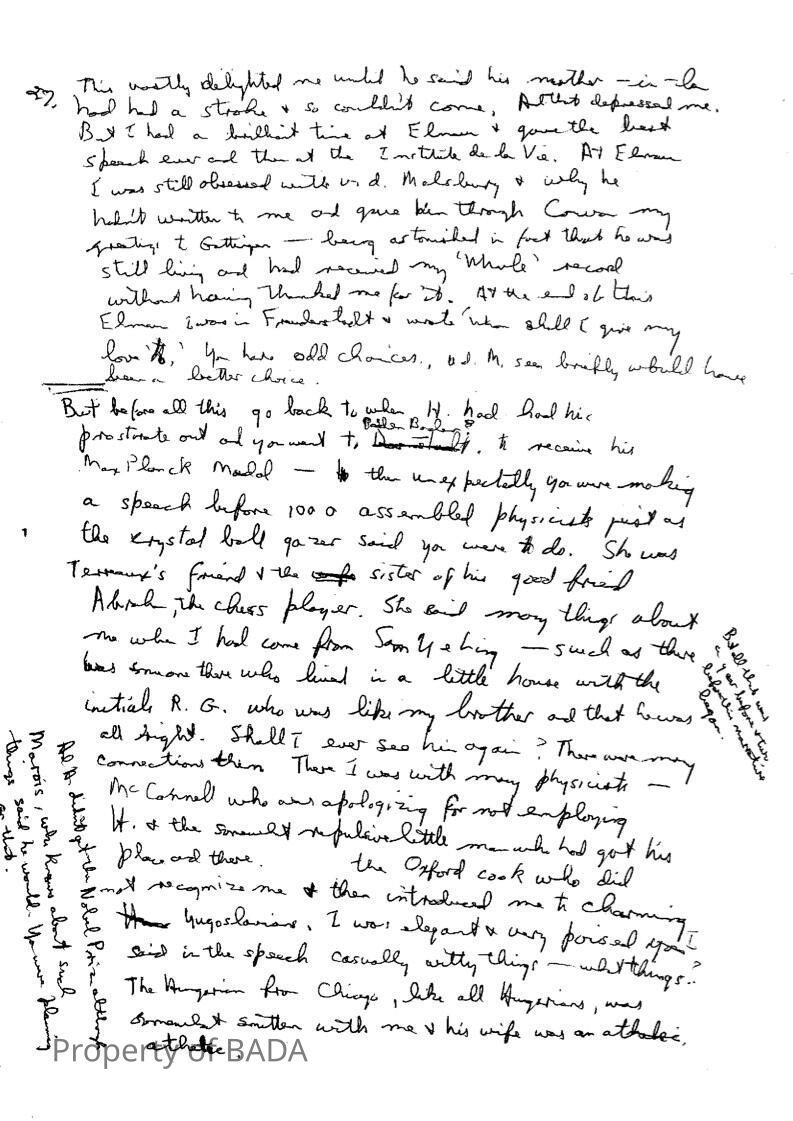 27. This vastly delighted me until he said his mother-in-la
had had a stroke & so couldn't come. All that depressed me.
But I had a brilliant time at Elmau & gave the best
speech ever and then at the Institute de la Vie. At Elmau
I was still obsessed with v.d. Malsbury & why he
hadn't written to me and gave him through Cowan my
greetings to Gottingen — being astonished in fact that he was
still living and had received my 'Whole' record
without having thanked me for it. At the end of this
Elmau I was in & wrote 'Whom shall I give my
love to,' You have odd choices., v.d. M. seen briefly would have
been a better choice.
But before all this go back to when H. had had his
prostrate out and you went to Baden Baden, to receive his
Max Planck Medal — then unexpectedly you were making
a speech before 1000 assembled physicists just as
the krystal ball gazer said you were to do. She was
Terreaux's friend & the sister of his good friend
the chess player. She said many things about
me when I had come from — such as there
was someone there who lived in a little house with the
initials R. G. who was like my brother and that he was
all right. Shall I ever see him again? There were many
connections then There I was with many physicists —
McConnell who was apologizing for not employing
H. & the somewhat repulsive little man who had got his
place and there. the Oxford cook who did
not recognize me & then introduced me to charming
Yugoslavians. I was elegant & very poised you I
said in the speech casually witty things — what things?
The Hungarian from Chicago, like all Hungarians, was
somewhat smitten with me & his wife was an athaletic,
athaletic.
But all this was
a year before & turn
before this narrative
began.
didn't get the Nobel Prize although
Marois, who knows about such
things said he would. You were planning
on that.
Property of BADA